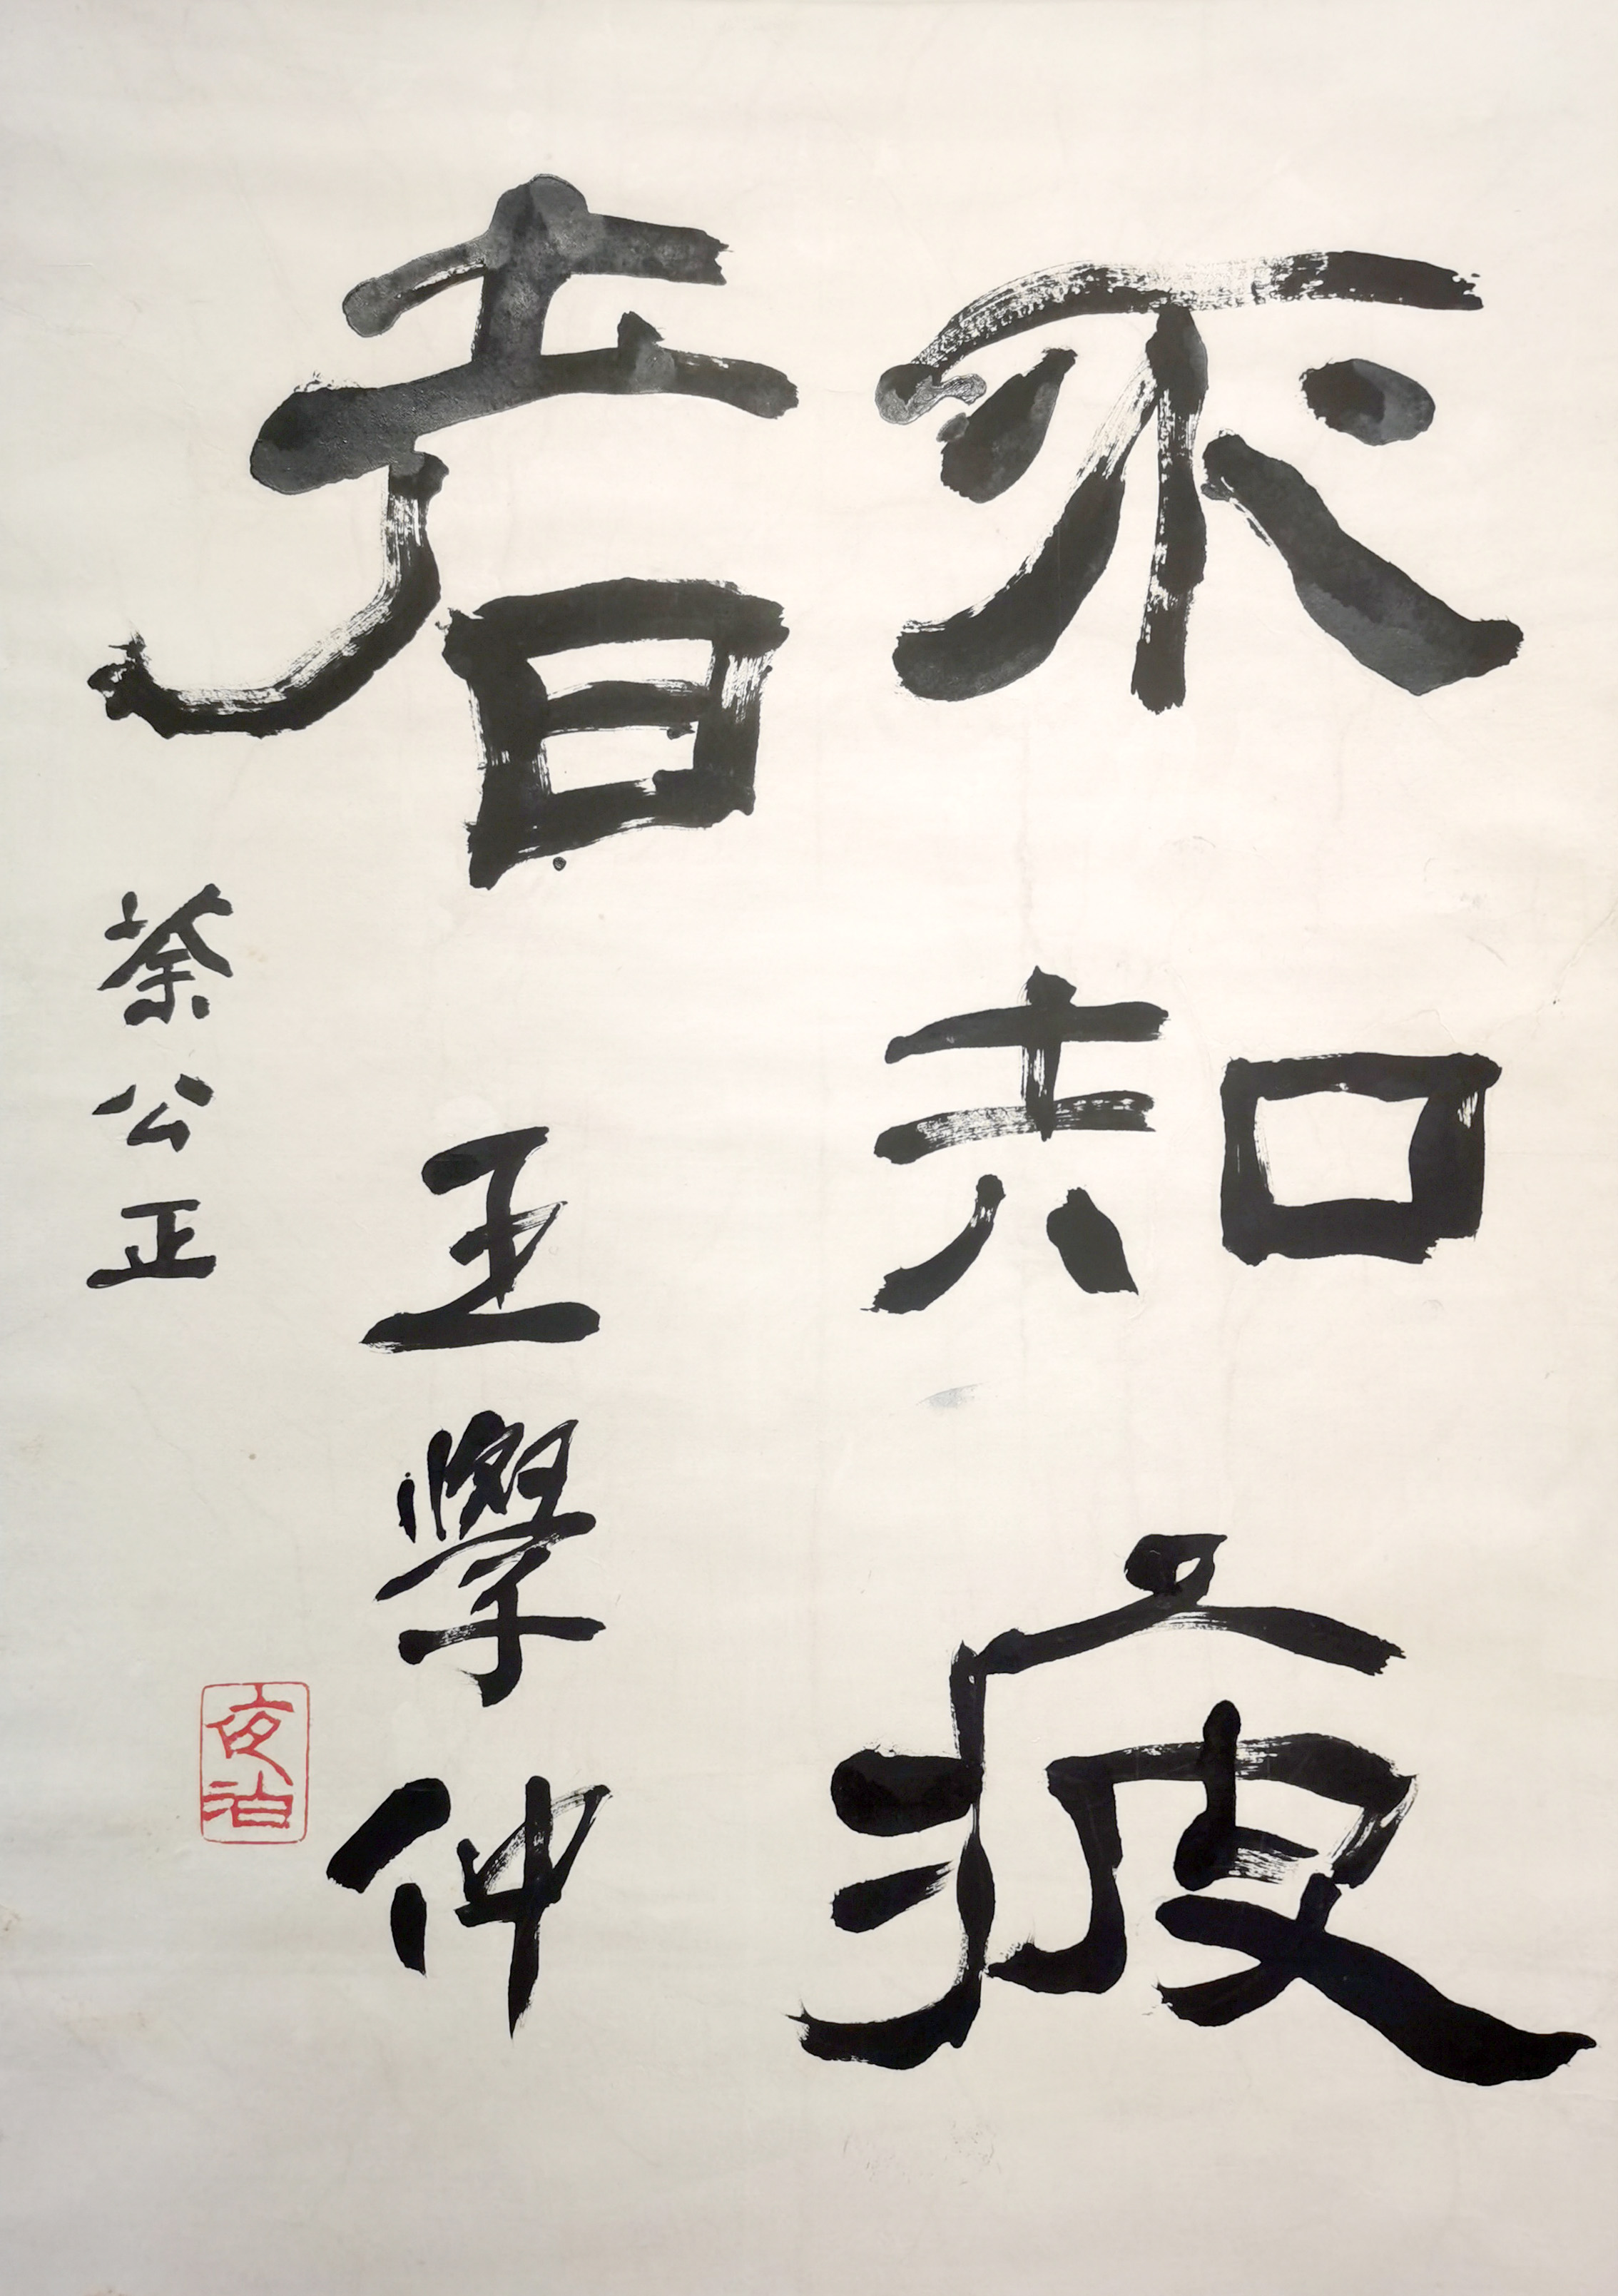 不知疲
者
王學仲
蔡公正
夜泊